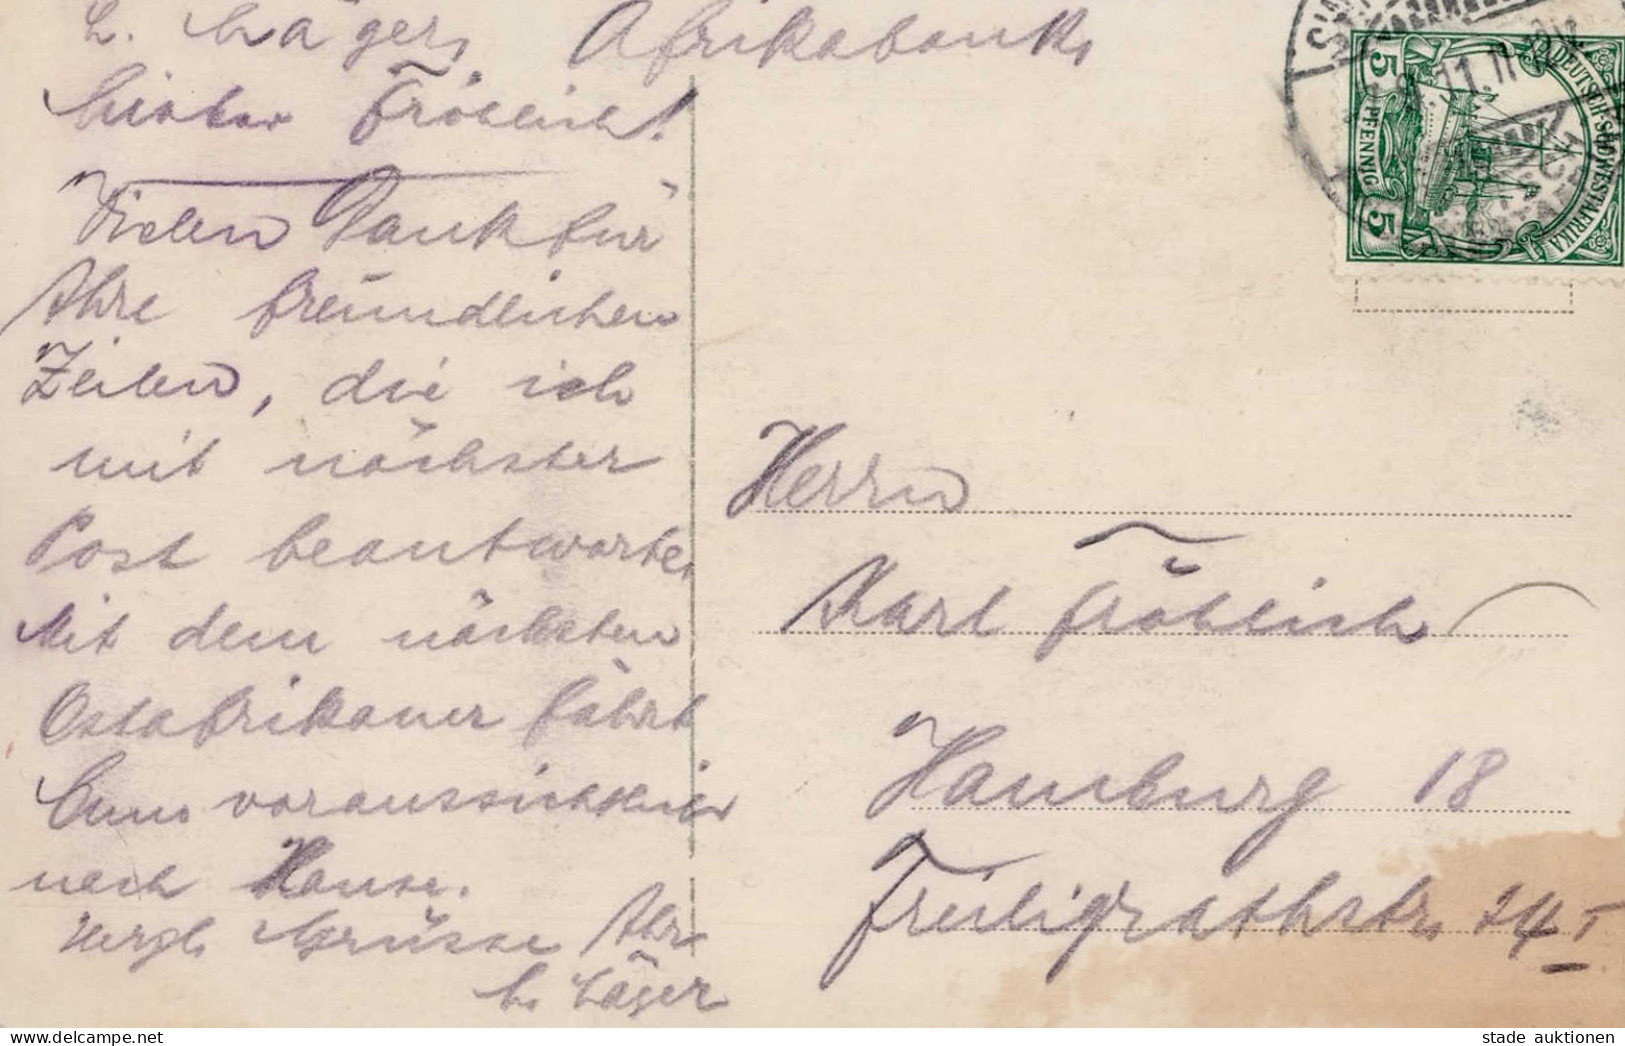 Afrikabank
Lieber Fröhlich!
Vielen Dank für
Ihre freundlichen
Zeilen, die ich
mit nächster
Post beantworte.
Mit dem nächsten
Ostafrikaner fährt
voraussichtlich
nach Hause.
Herzl. Grüsse Ihr
L. Jäger
DEUTSCH-SÜDWESTAFRIKA
5 PFENNIG 5
Herrn
Karl Fröhlich
Hamburg 18
Freiligrathstr. 14 I
stade auktionen